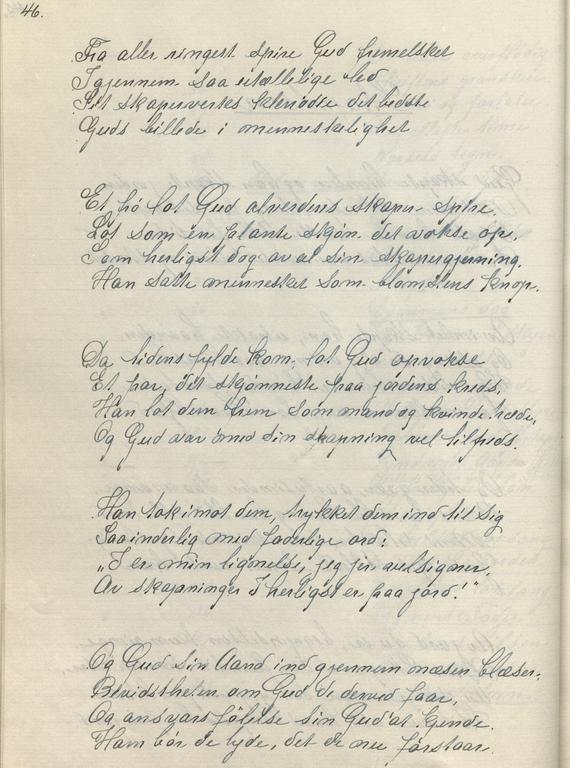 46.
Fra aller ringest spire Gud fremelsket
Igjennem saa utællelige led
Sit skaperverks klenodie det bedste
Guds billede i menneskelighet
Et frö lot Gud alverdens skaper- spire.
Lot som en plante skjön. det vokse op.
Som herligst dog av al sin skapergjerning.
Han satte mennesket som blomstens knop.
Da tidens fylde kom. lot Gud opvokse
Et par, det skjönneste paa jordens kreds.
Han lot dem frem som mand og kvinde træde.
Og Gud var med sin skapning vel tilfreds.
Han tok imot dem, trykket dem ind til sig
Saa inderlig med faderlige ord:
"I er min lignelse, jeg jer velsigner.
Av skapninger I herligst er paa jord!"
Og Gud sin Aand ind gjennem næsen blæser.
Bevidstheten om Gud de derved faar.
Og ansvarsfölelse sin Gud at kjende.
Ham bör de lyde, det de nu forstaar.